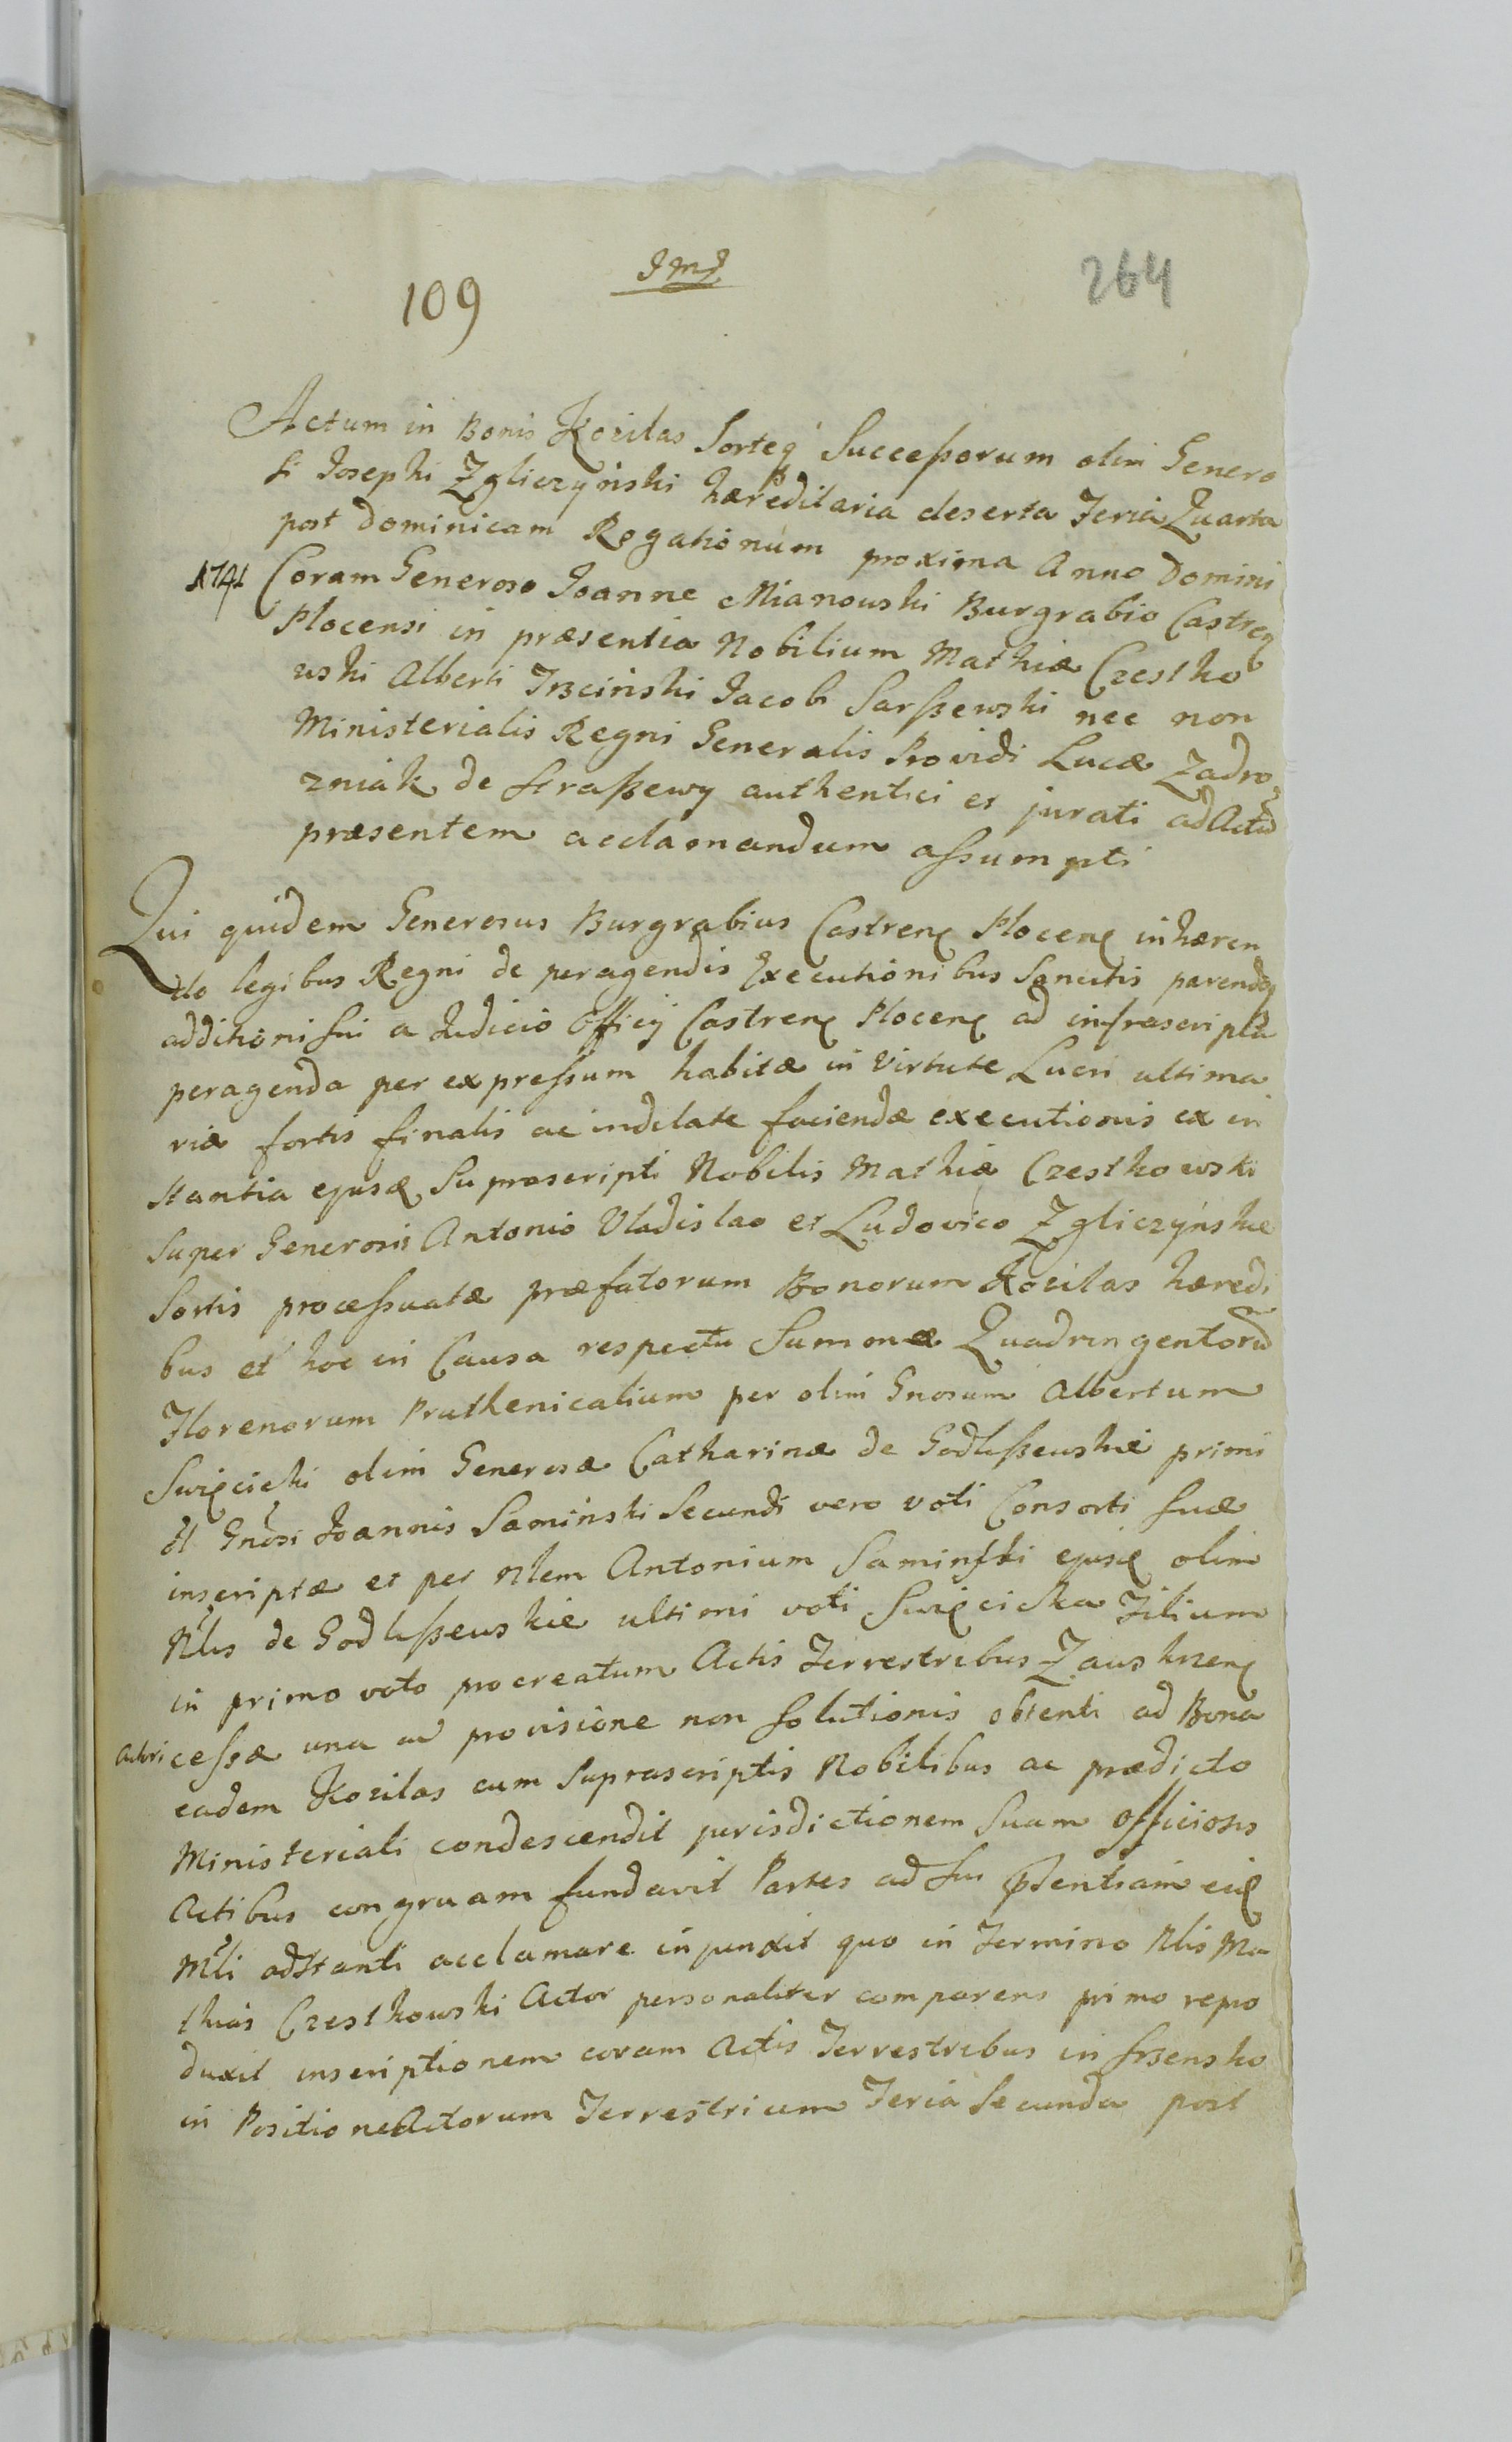 JMJ
109
264
Actum in Bonis Kozilas Sorteq Successorum olim Genero
si Josephi Zgliczyński hæreditaria deserta Feria Quarta
post Dominicam Rogationum proxima Anno Domini
1741 Coram Generoso Joanne Mianowski Burgrabio Castren
Plocensi in præsentia Nobilium Mathiæ Czestko
wski Alberti Trzcinski Jacobi Sarszewski nec non
Ministerialis Regni Generalis Providi Lucæ Zadro
zniak de Straszewy authentici et jurati ad Actũ
præsentem acclamandum assumpti
Qui quidem Generosus Burgrabius Castren Plocen inhæren
do legibus Regni de peragendis Executionibus Sancitis parendoq
additioni sui a Judicio Officij Castren Plocen ad infrascripta
peragenda per expressum habitæ in Virtute Lucri ultima
riæ fortis finalis ac indilate faciendæ executionis ex in
stantia ejusd Suprascripti Nobilis Mathiæ Czestkowski
Super Generosis Antonio Vladislao et Ludovico Zgliczynskie
Sortis processuatæ præfatorum Bonorum Kozilas hæredi
bus et hoc in Causa respectu Summæ Quadringentorũ
Florenorum Pruthenicalium per olim Gnosum Albertum
Swięcicki olim Generosæ Catharinæ de Godlszewskie primi
et Gnosi Joannis Saminski Secundi vero voti Consorti suæ
inscriptæ et per Nlem Antonium Saminski ejusd olim
Nlis de Godleszewskie ultimi voti Swięcicka Filium
in primo voto procreatum Actis Terrestribus Zawskrzen
Actori cessæ una ac provisione non solutionis obtenti ad Bona
eadem Kozilas cum Suprascriptis Nobilibus ac prædicto
Ministeriali condescendit jurisdictionem Suam officiosis
Actibus congruam fundavit Partes ad sui pðentiam eid
Mli adstanti acclamare injunxit quo in Termino Nlis Ma
thias Czestkowski Actor personaliter comparens primo repro
duxit inscriptionem coram Actis Terrestribus in Srzensko
in Positione Actorum Terrestrium Feria Secunda post